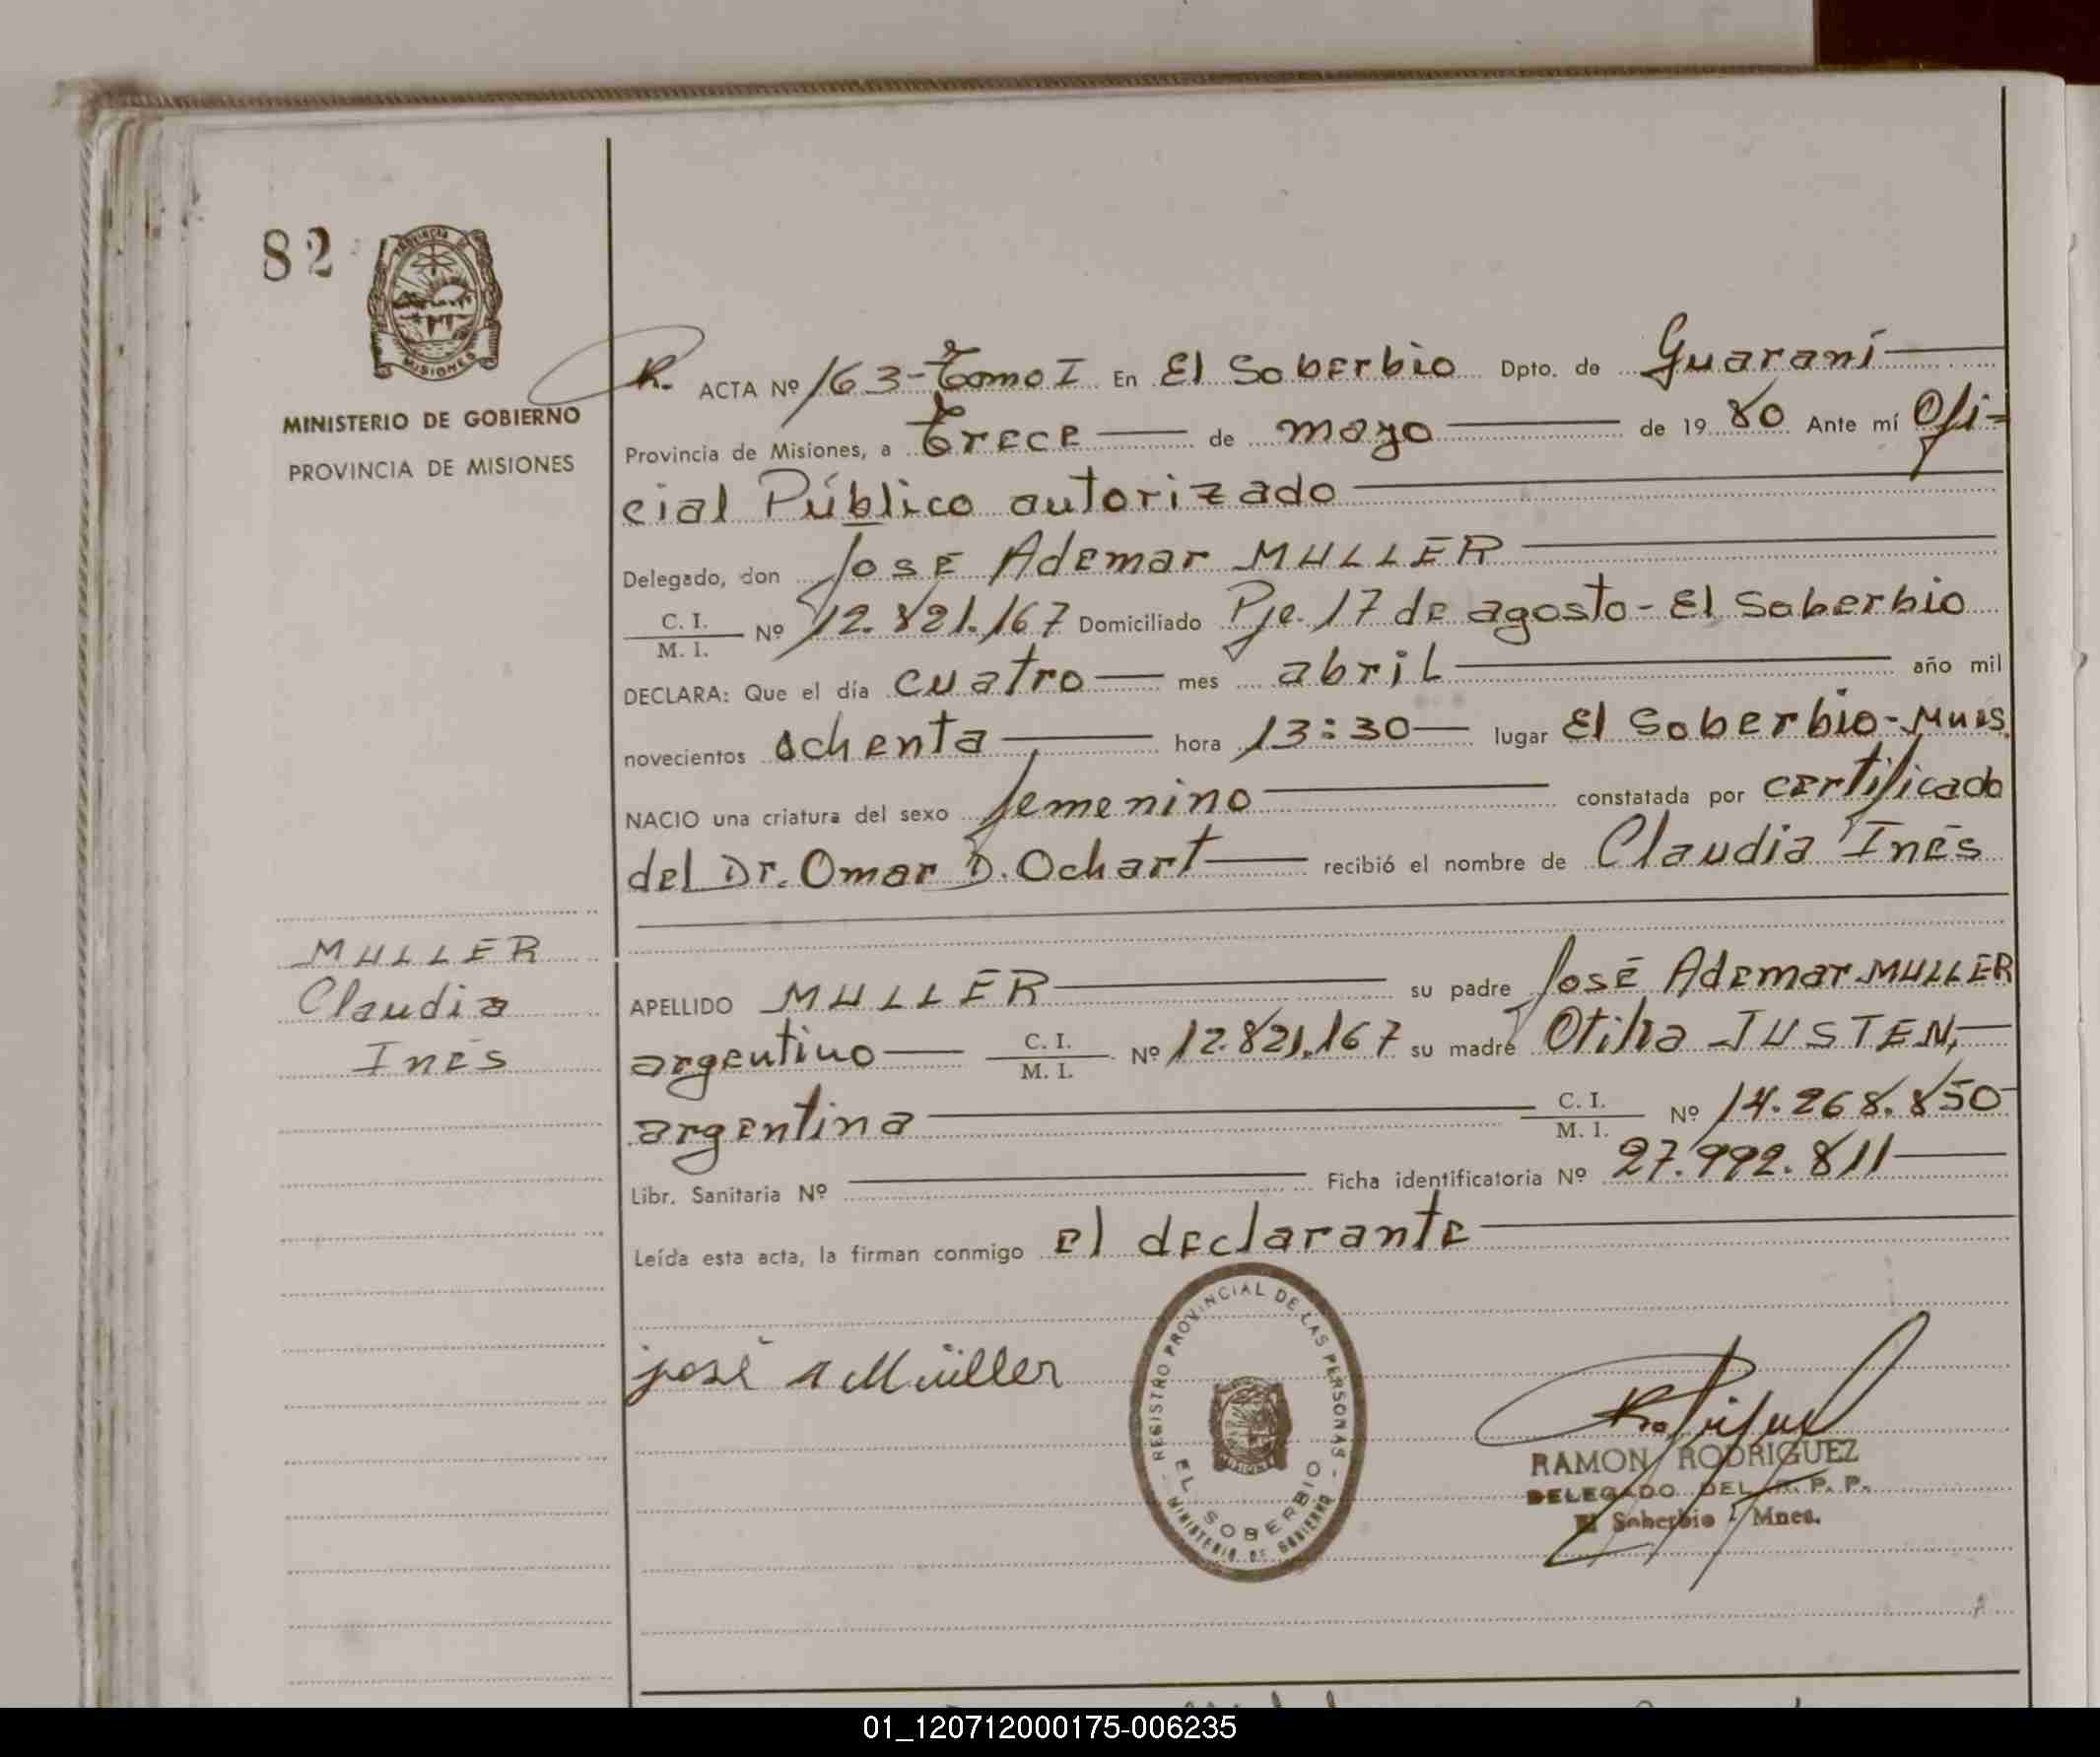 82
PROVINCIA DE
MISIONES
MINISTERIO DE GOBIERNO
PROVINCIA DE MISIONES
R. ACTA Nº 163-Tomo I En El Soberbio Dpto. de Guaraní
Provincia de Misiones, a Trece de mayo de 1980 Ante mí Ofi=
cial Público autorizado
Delegado, don José Ademar MULLER
C. I.
M. I. Nº 12.821.167 Domiciliado Pje. 17 de agosto - El Soberbio
DECLARA: Que el día cuatro mes abril año mil
novecientos ochenta hora 13:30 lugar El Soberbio-Mnes.
NACIO una criatura del sexo femenino constatada por certificado
del Dr. Omar D. Ochart recibió el nombre de Claudia Inés
MULLER
Claudia
Inés
APELLIDO MULLER su padre José Ademar MULLER
argentino C. I.
M. I. Nº 12.821.167 su madre Otilia JUSTEN,
argentina C. I.
M. I. Nº 14.268.850
Libr. Sanitaria Nº Ficha identificatoria Nº 27.992.811
Leída esta acta, la firman conmigo el declarante
REGISTRO PROVINCIAL DE LAS PERSONAS -
EL SOBERBIO
MINISTERIO DE GOBIERNO
MISIONES
josé A Müller
RAMON RODRIGUEZ
DELEGADO DEL R. P. P.
El Soberbio - Mnes.
01_120712000175-006235